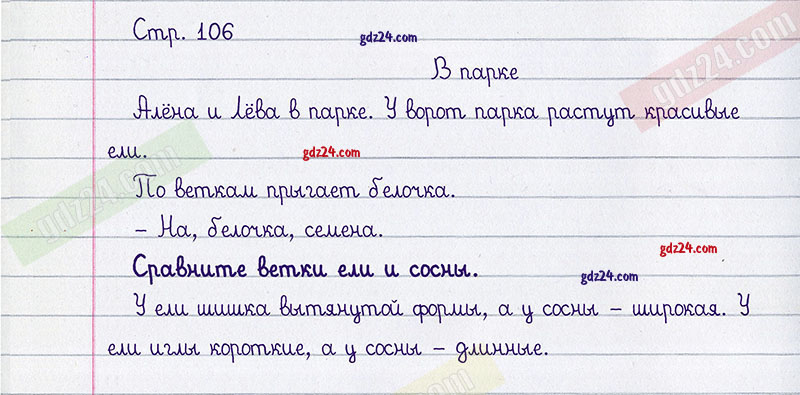 Стр. 106
gdz24.com
gdz24.com
В парке
Алёна и Лёва в парке. У ворот парка растут красивые
ели.
gdz24.com
gdz24.com
По веткам прыгает белочка.
– На, белочка, семена.
gdz24.com
Сравните ветки ели и сосны.
gdz24.com
У ели шишка вытянутой формы, а у сосны – широкая. У
ели иглы короткие, а у сосны – длинные.